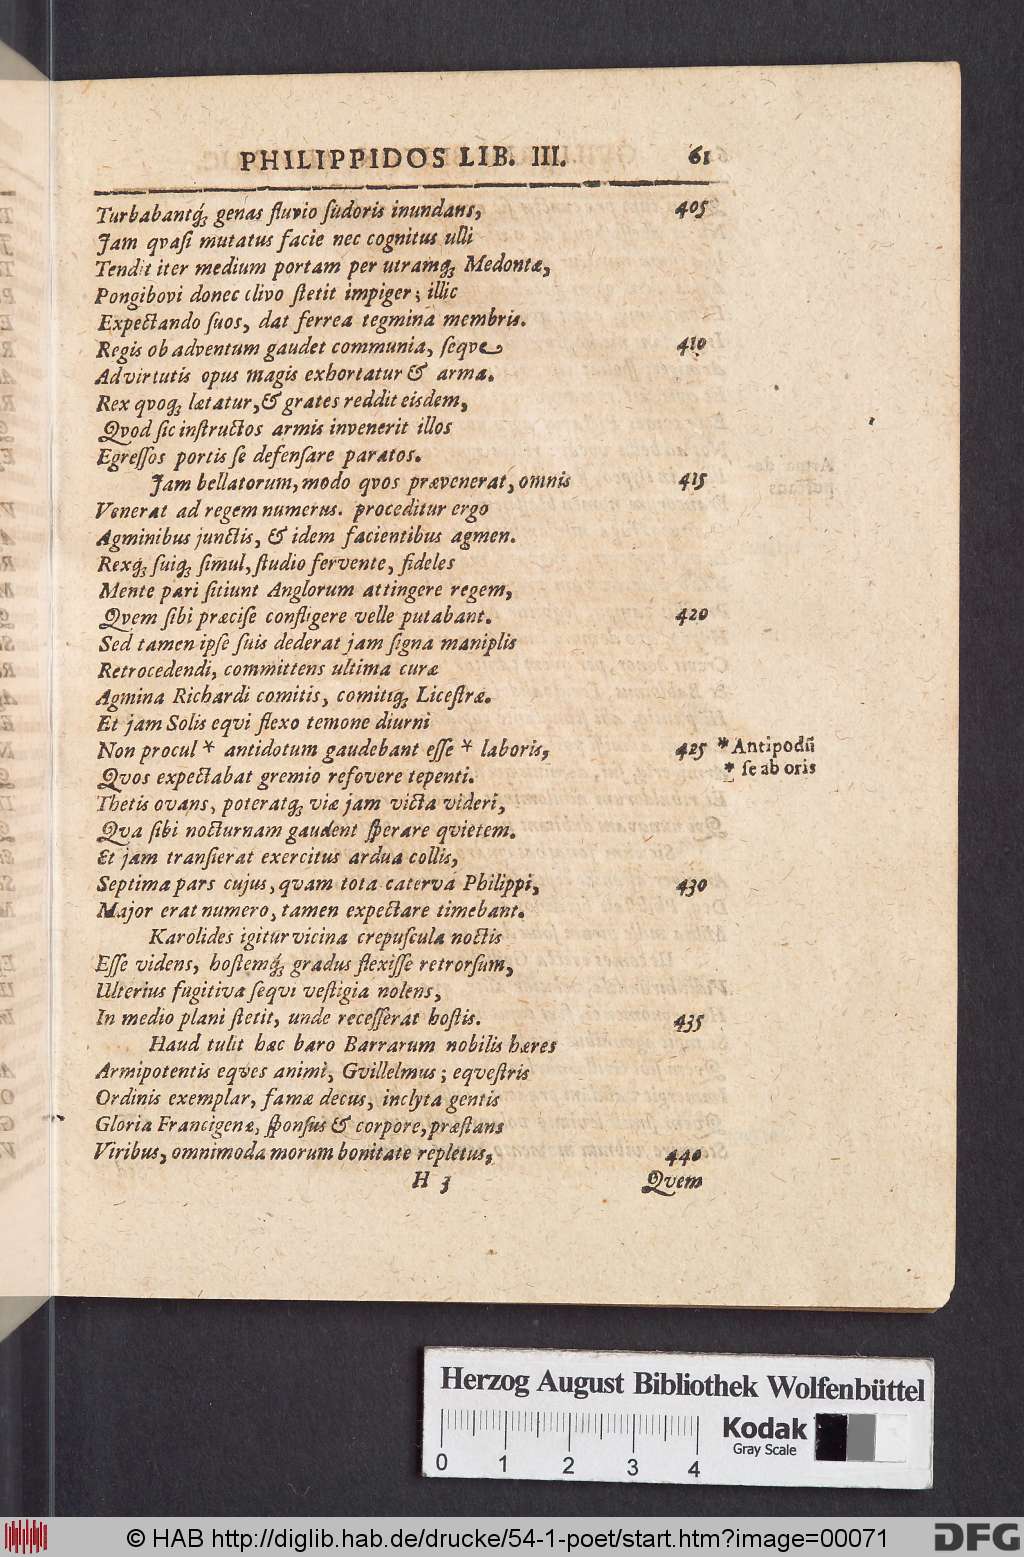 PHILIPPIDOS LIB. III. 61
Turbabantq́ꝫ genas fluvio ſudoris inundans, 405
Jam qvaſi mutatus facie nec cognitus ulli
Tendit iter medium portam per utramq́ꝫ Medontæ,
Pongibovi donec clivo ſtetit impiger; illic
Expectando ſuos, dat ferrea tegmina membris.
Regis ob adventum gaudet communia, ſeqve 410
Ad virtutis opus magis exhortatur & arma.
Rex qvoqꝫ lætatur, & grates reddit eisdem,
Qvod ſic inſtructos armis invenerit illos
Egreſſos portis ſe defenſare paratos.
Jam bellatorum, modo qvos prævenerat, omnis 415
Venerat ad regem numerus. proceditur ergo
Agminibus junctis, & idem facientibus agmen.
Rexq́ꝫ ſuiqꝫ ſimul, ſtudio fervente, fideles
Mente pari ſitiunt Anglorum attingere regem,
Qvem ſibi præciſe confligere velle putabant. 420
Sed tamen ipſe ſuis dederat jam ſigna maniplis
Retrocedendi, committens ultima curæ
Agmina Richardi comitis, comitiqꝫ Liceſtræ.
Et jam Solis equi flexo temone diurni
Non procul * antidotum gaudebant eſſe * laboris, 425 * Antipodũ
* ſe ab oris
Qvos expectabat gremio refovere tepenti.
Thetis ovans, poteratqꝫ viæ jam victa videri,
Qva ſibi nocturnam gaudent ſperare qvietem.
Et jam tranſierat exercitus ardua collis,
Septima pars cujus, qvam tota caterva Philippi, 430
Major erat numero, tamen expectare timebant.
Karolides igitur vicina crepuſcula noctis
Eſſe videns, hoſtemq́ꝫ gradus flexiſſe retrorſum,
Ulterius fugitiva ſequi veſtigia nolens,
In medio plani ſtetit, unde receſſerat hoſtis. 435
Haud tulit hæc baro Barrarum nobilis hæres
Armipotentis eqves animi, Gvillelmus; eqveſtris
Ordinis exemplar, famæ decus, inclyta gentis
Gloria Francigenæ, ſponſus & corpore, præſtans
Viribus, omnimoda morum bonitate repletus, 440
H 3 Qvem
Herzog August Bibliothek Wolfenbüttel
Kodak
Gray Scale
0 1 2 3 4
© HAB http://diglib.hab.de/drucke/54-1-poet/start.htm?image=00071
DFG